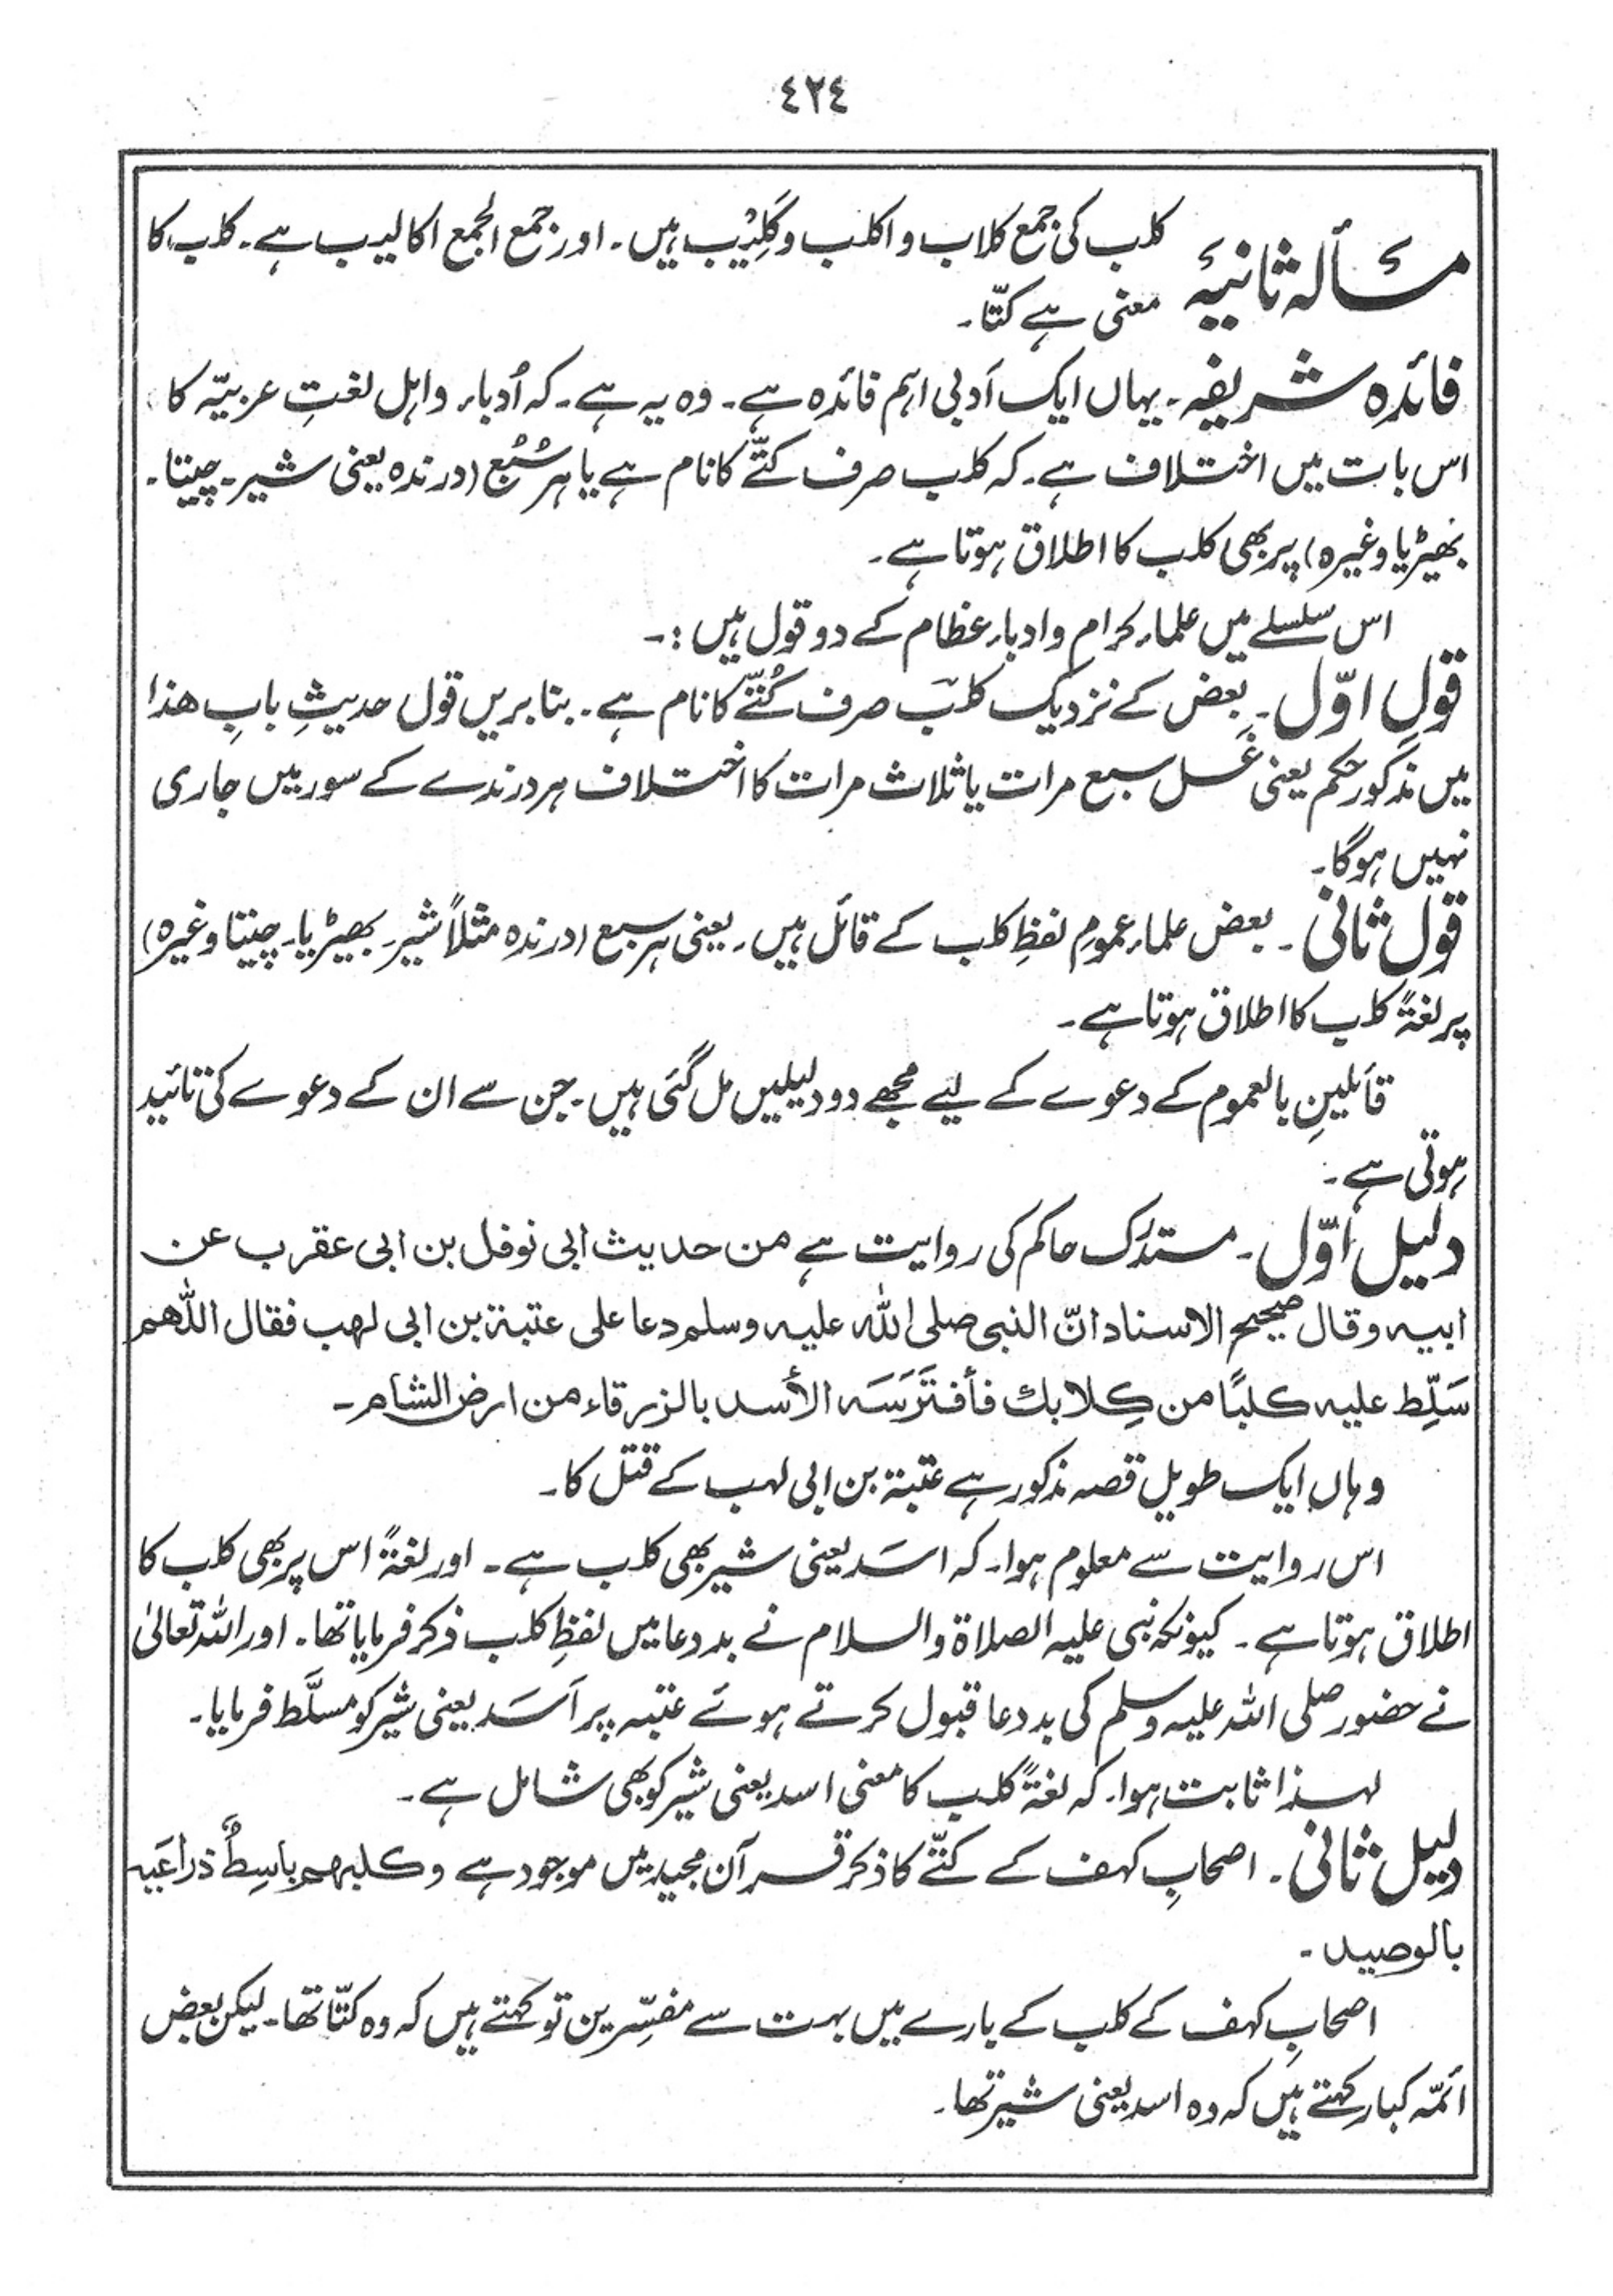 ٤٢٤
مسألہ ثانیہ کلب کی جمع کلاب و اکلب و کَلِیْب ہیں۔ اور جمع الجمع اکالیب ہے۔ کلب کا
معنی ہے کتّا۔
فائدہ شریفہ۔ یہاں ایک اَدبی اہم فائدہ ہے۔ وہ یہ ہے۔ کہ اُدباء واہل لغتِ عربیّہ کا
اس بات میں اختلاف ہے۔ کہ کلب صرف کتّے کا نام ہے یا ہر سَبُع (درندہ یعنی شیر۔ چیتا۔
بھیڑیا وغیرہ) پر بھی کلب کا اطلاق ہوتا ہے۔
اس سلسلے میں علماء کرام و ادباء عظام کے دو قول ہیں :۔
قولِ اوّل۔ بعض کے نزدیک کلب صرف کُتّے کا نام ہے۔ بنا بریں قول حدیثِ بابِ ھذا
میں مذکور حکم یعنی غَسل سبع مرات یا ثلاث مرات کا اختلاف ہر درندے کے سور میں جاری
نہیں ہوگا۔
قول ثانی۔ بعض علماء عمومِ لفظِ کلب کے قائل ہیں۔ یعنی ہر سبع (درندہ مثلاً شیر۔ بھیڑیا۔ چیتا وغیرہ)
پر لغۃً کلب کا اطلاق ہوتا ہے۔
قائلینِ بالعموم کے دعوے کے لیے مجھے دو دلیلیں مل گئی ہیں۔ جن سے ان کے دعوے کی تائید
ہوتی ہے۔
دلیل اوّل۔ مستدرک حاکم کی روایت ہے من حدیث ابی نوفل بن ابی عقرب عن
ابیہ وقال صحیح الاسناد انّ النبی صلی اللہ علیہ وسلم دعا علی عتبۃ بن ابی لھب فقال اللّٰھم
سَلِّط علیہ کلبًا من کِلابک فأفتَرَسَہ الأسد بالزرقاء من ارض الشام۔
وہاں ایک طویل قصہ مذکور ہے عتبۃ بن ابی لہب کے قتل کا۔
اس روایت سے معلوم ہوا۔ کہ اسَد یعنی شیر بھی کلب ہے۔ اور لغۃً اس پر بھی کلب کا
اطلاق ہوتا ہے۔ کیونکہ نبی علیہ الصلاۃ والسلام نے بددعا میں لفظِ کلب ذکر فرمایا تھا۔ اور اللہ تعالیٰ
نے حضور صلی اللہ علیہ وسلم کی بددعا قبول کرتے ہوئے عتبہ پر اَسَد یعنی شیر کو مسلَّط فرمایا۔
لہذا ثابت ہوا۔ کہ لغۃً کلب کا معنی اسد یعنی شیر کو بھی شامل ہے۔
دلیل ثانی۔ اصحابِ کہف کے کتّے کا ذکر قرآن مجید میں موجود ہے وکلبھم باسِطٌ ذراعَیہ
بالوصید۔
اصحابِ کہف کے کلب کے بارے میں بہت سے مفسّرین تو کہتے ہیں کہ وہ کتّا تھا۔ لیکن بعض
ائمّہ کبار کہتے ہیں کہ وہ اسد یعنی شیر تھا۔